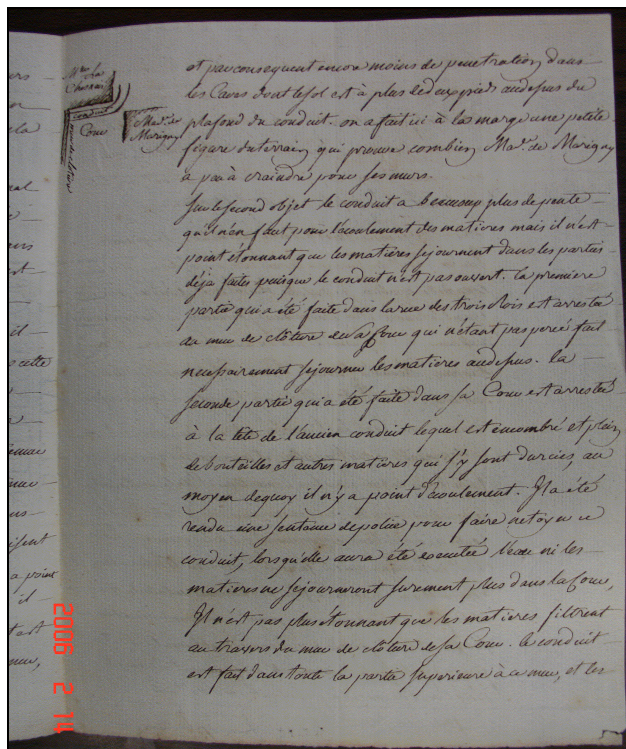 Mr. la
Chesnai
Cour
Made. de
Marigny
mur de cloture
et par consequent encore moins de penetration dans
les Caves dont le sol est à plus de deux pieds au dessus du
plafond du conduit. on a fait ici à la marge une petite
figure du terrain qui prouve combien Made. de Marigny
a peu à craindre pour ses murs.
Sur le second objet le conduit a beaucoup plus de pente
qu'il n'en faut pour l'écoulement des matieres mais il n'est
point étonnant que les matieres sejournent dans les parties
déja faites puisque le conduit n'est pas ouvert. la premiere
partie qui a été faite dans la rue des trois Rois est arrestée
au mur de clôture de sa Cour qui n'étant pas percé fait
necessairement sejourner les matieres au dessus. la
seconde partie qui a été faite dans sa Cour est arrestée
à la tête de l'ancien conduit lequel est encombré et plein
de bouteilles et autres matieres qui s'y sont durcies, au
moyen dequoy il n'y a point d'écoulement. Il a été
rendu une sentence de police pour faire netoyer ce
conduit, lorsqu'elle aura été executée l'eau ni les
matieres ne sejourneront surement plus dans la Cour,
Il n'est pas plus étonnant que les matieres filtrent
au travers du mur de clôture de sa Cour. le conduit
est fait dans toute la partie superieure à ce mur, et les
2006 2 14